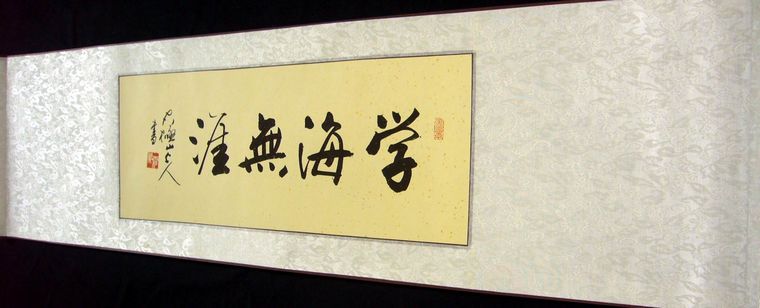 学海無涯
山人
書